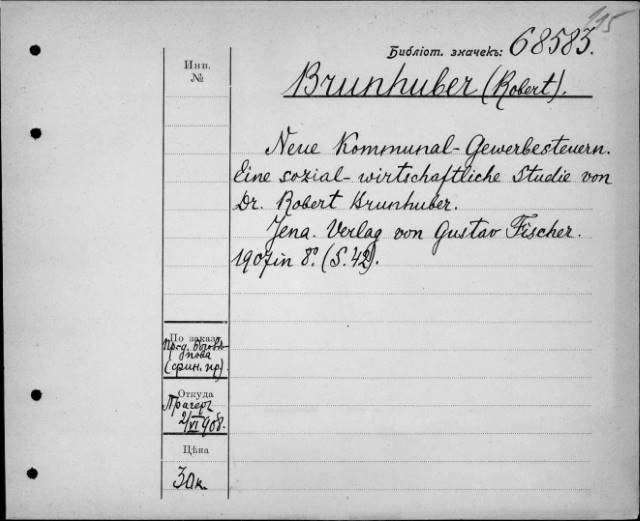 195
Библіот. значекъ: 68583.
Инв. №
Brunhuber (Robert).
Neue Kommunal-Gewerbesteuern.
Eine sozial-wirtschaftliche Studie von
Dr. Robert Brunhuber.
Jena. Verlag von Gustav Fischer.
1907 in 8º. (S. 42).
По заказу
(фин. пр)
Откуда
Прагеръ
2/VI 908.
Цѣна